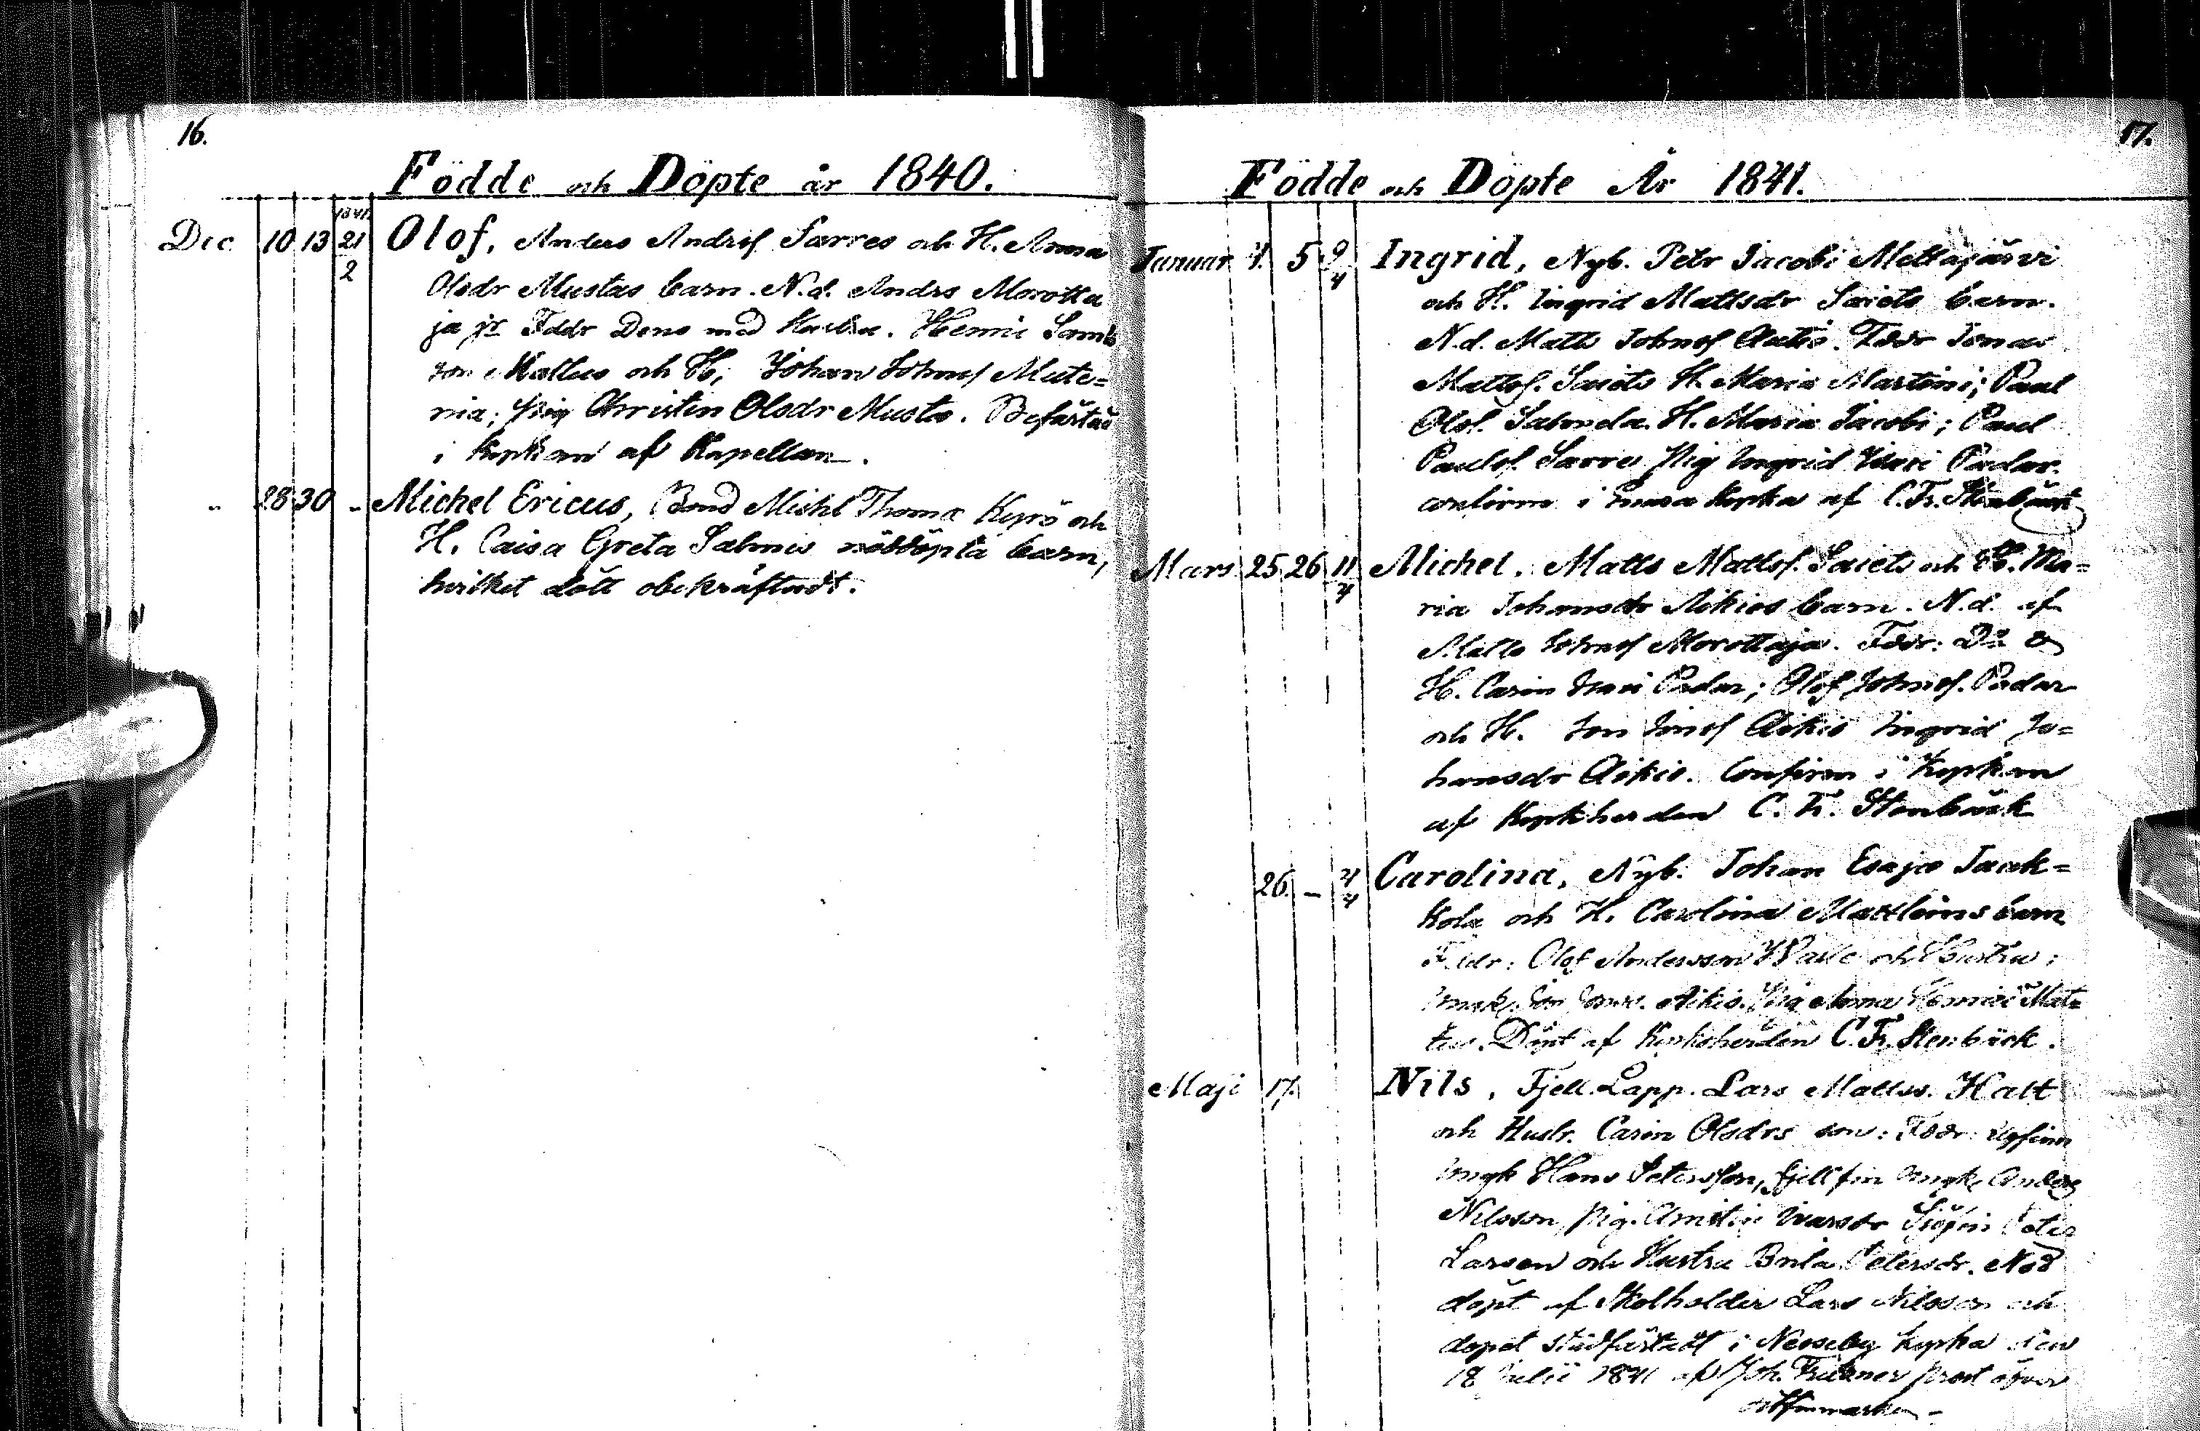 16.
Födde och Döpte år 1840.
1841.
Dec 10 13 21/2 Olof, Anders Andrsf Sarres och H. Anna
Olsdr Mustas barn. N.d. Andrs Morotta
ja jr Fddr Dens med Hustru. Henric Sam
son Mattus och H; Johan Johnsf Mute=
nia; Pig Christin Olsdr Musta. Befästad
i Kyrkan af Kapellan.
„ 28 30 - Michel Ericus, Bond Michl Thomæ Kyrö och
H. Caisa Greta Salmis nöddöpta barn,
hvilket dött obekräftadt.
17.
Födde och Döpte År 1841.
Januar 4. 5 9/4 Ingrid, Nyb. Petr Jacobi Mettäjärvi
och H. Ingrid Mattsdr Saiets barn.
N.d. Matts Johnsf Autio. Fddr Jonas
Mattsf. Saiets H. Maria Martini; Paul
Olsf. Saboda H. Maria Jacobi; Paul
Paulsf. Sarre Pig Ingrid Padar.
confirm i Enara Kyrka af C. Fr. Stenbäck
Mars 25 26 11/4 Michel, Matts Mattsf. Saiets och H. Ma=
ria Johansdr Aikios barn. N.d. af
Matts Johnsf Morottaja. Fddr: Do &
H. Carin Padar; Olof Johnsf. Padar
och H. Jon Jonsf Aikio Ingrid Jo=
hansdr Aikio. Confirm i Kyrkan
af Kyrkherden C. Fr. Stenbäck
26. - 4/4 Carolina, Nyb. Johan Esajæ Jaak=
kola och H. Carolina Mattleins barn
Fddr: Olof Andersson Walle och Hustru;
Jon Jons. Aikio. Pig Anna Henrici Mat=
tus. Döpt af Kyrkoherden C. Fr. Stenbäck.
Maji 17. Nils, Fjell Lapp. Lars Matts. Halt
och Hustr. Carin Olsdrs son: Fddr
Ungk Hans Petersson, fjellfin Ungk. Anders
Nilsson, Pig. Christin Ivarsdr Sjöfin Peter
Larsen och Hustru Brita Petersdr. Nöd
döpt af Skolholder Lars Nilsson och
dopet stadfästadt i Nesseby Kyrka den
18 Julii 1841 af Joh. Fritzner prost öfver
ostfinmarken -